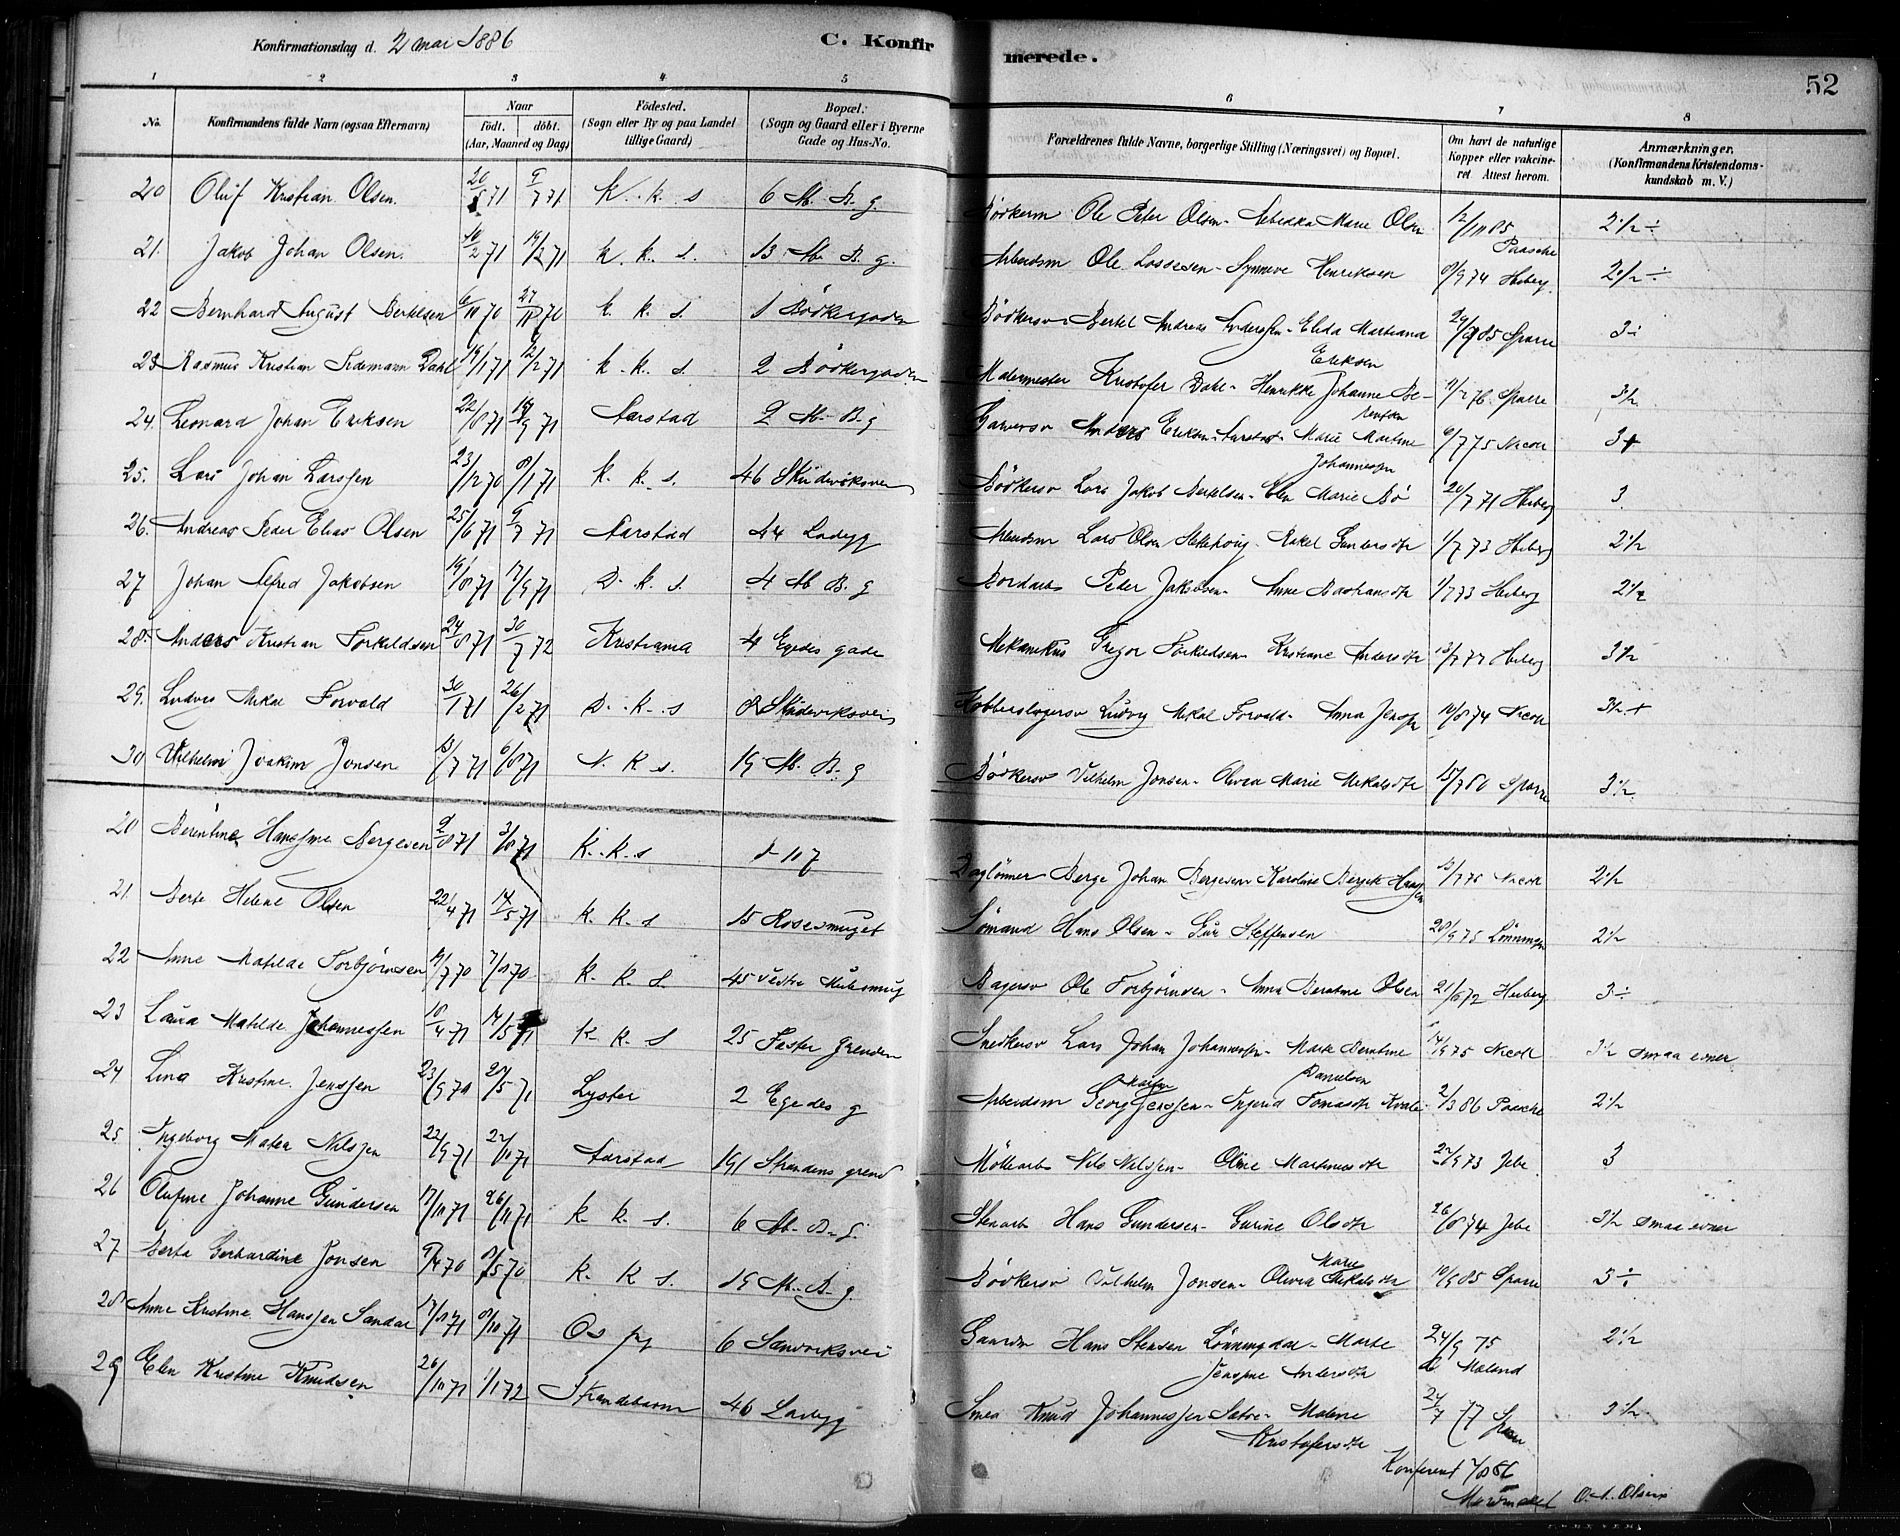 Konfirmationsdag d. 2 mai 1886
C. Konfirmerede.
52
1 2 3 4 5 6 7 8
No.
Konfirmandens fulde Navn (ogsaa Efternavn)
Naar
født. døbt.
(Aar, Maaned og Dag)
Fødested.
(Sogn eller By og paa Landet tillige Gaard)
Bopæl.
(Sogn og Gaard eller i Byerne Gade og Hus-No.
Forældrenes fulde Navne, borgerlige Stilling (Næringsvei) og Bopæl.
Om havt de naturlige Kopper eller vakcineret Attest herom.
Anmærkninger.
(Konfirmandens Kristendomskundskab m. V.)
20 Oluf Kristian Olsen. K. k. s 6 M. B. g Bödkerm Ole Peter Olsen - Marie Olsen 2 1/2 ÷
21. Jakob Johan Olsen. 10/2 71 19/2 71 K. k. s. 13 M. B. g. Arbeidsm Ole Lassesen - Synneve Henriksen 9/9 74 Heiberg 2 1/2 ÷
22 Bernhard August Bertelsen 6/11 70 27/11 70 K. k. s. 1 Bödkergaden Bödkersv Bertel Andreas Anderssen - Elida Martiana Eriksen 85 Sparre 3 ÷
23 Rasmus Kristian Dahl 19/1 71 12/2 71 K. k. s 2 Bödkergaden Malermester Kristofer Dahl - Henrikke Johanne Berentsen 11/2 76 Sparre 3 1/2
24. Leonard Johan Eriksen 22/8 71 Aarstad 2 M. B. g Garversv Anders Eriksen Aarstad - Marie Martine Johannessen 6/7 75 Nicoll 3 +
25. Lars Johan Larssen 23/12 70 8/1 71 K. k. s. 46 Skudeviksvei Bödkersv Lars Jakob Bertelsen - Elen Marie Bö 20/7 71 Heiberg 3.
26. Andreas Peder Elias Olsen 25/6 71 9/7 71 Aarstad 44 Ladeg Arbeidsm Lars Olsen - Rakel Gundersdtr 1/7 73 Heiberg 2 1/2
27 Johan Alfred Jakobsen 19/8 71 17/9 71 D. k. s. 4 M. B. g Bordarb Peder Jakobsen - Anne Bastiansdtr 1/7 73 Heiberg 2 1/2
28. Anders Kristian Torkildsen 24/8 71 30/7 72 Kristiania 4 Egedes gade Mekanikus Gregor Torkildsen - Kristiane Andersdtr 13/7 77 Heiberg 3 1/2
29. Ludvig Mikal Forvald 30/1 71 26/2 71 D. k. s 8 Skudeviksvei Kobberslagersv Ludvig Mikal Forvald - Anna Jenssen 10/8 74 Nicoll 3 1/2 +
30 Vilhelm Joakim Jonsen 13/7 71 6/8 71 N. K. s. 19 M. B. g Bödkersv Vilhelm Jonsen - Olivia Marie Mikalsdtr 15/7 80 Sparre 3 1/2
20 Berentine Hansine Bergesen 3/8 71 K. k. s Daglönner Berge Johan Bergesen - Karoline Hanssen Nicoll 2 1/2
21. Berte Helene Olsen 22/4 71 14/5 71 K. k. s 15 Rosesmuget Sömand Hans Olsen - Guri Steffensen 28/9 75 Lönningen 2 1/2
22 Anne Matilde Torbjörnsen 7/8 70 K. k. s. 45 Vestre Mulesmug Bagersv Ole Torbjörnsen - Anna Berntine Olsen 21/6 72 Heiberg 3 ÷
23 Laura Matilde Johannessen 10/4 71 14/5 71 K. K. S 25 Faster grenden Snedkersv Lars Johan Johannessen - Marte Berntine Danielsen 14/9 75 Nicoll 3 1/2 smaa evner
24 Lina Kristine Jenssen 23/9 70 Lyster 2 Egedes g Arbeidsm Georg Jenssen - Ingerid Tomasdtr Kvale 2/3 86 Paasche 2 1/2
25 Ingeborg Matea Nilssen 22/9 71 22/10 71 Aarstad 191 Strandens grend Möllearb Nils Nilssen - Oline Martinusdtr 22/9 73 Jebe 3
26 Olufine Johanne Gundersen 17/11 71 26/11 71 K. k. s. 6 M. B. g. Stenarb Hans Gundersen - Gurine Olsdtr 26/8 74 Jebe 3 1/2 smaa evner
27 Berta Gerhardine Jonsen 9/4 70 8/5 70 K. K. s. 19 M. B. g. Bödkersv Vilhelm Jonsen - Olivia Marie Mikalsdtr 10/9 85 Sparre 3 ÷
28 Anne Kristine Hanssen Sandal 17/9 71 8/10 71 Os 6 Sandviksvei Gaardm Hans Stensen Lönningdal - Marte Jensine Andersdtr 24/9 75 Moland 2 1/2
29 Elen Kristine Knudsen 26/10 71 1/1 72 Strandebarm 46 Ladeg Smed Knud Johannessen Sætre - Malene Kristofersdtr 24/7 77 Sparre 3 1/2
Konfereret 7/8 86
O. A. Olsen